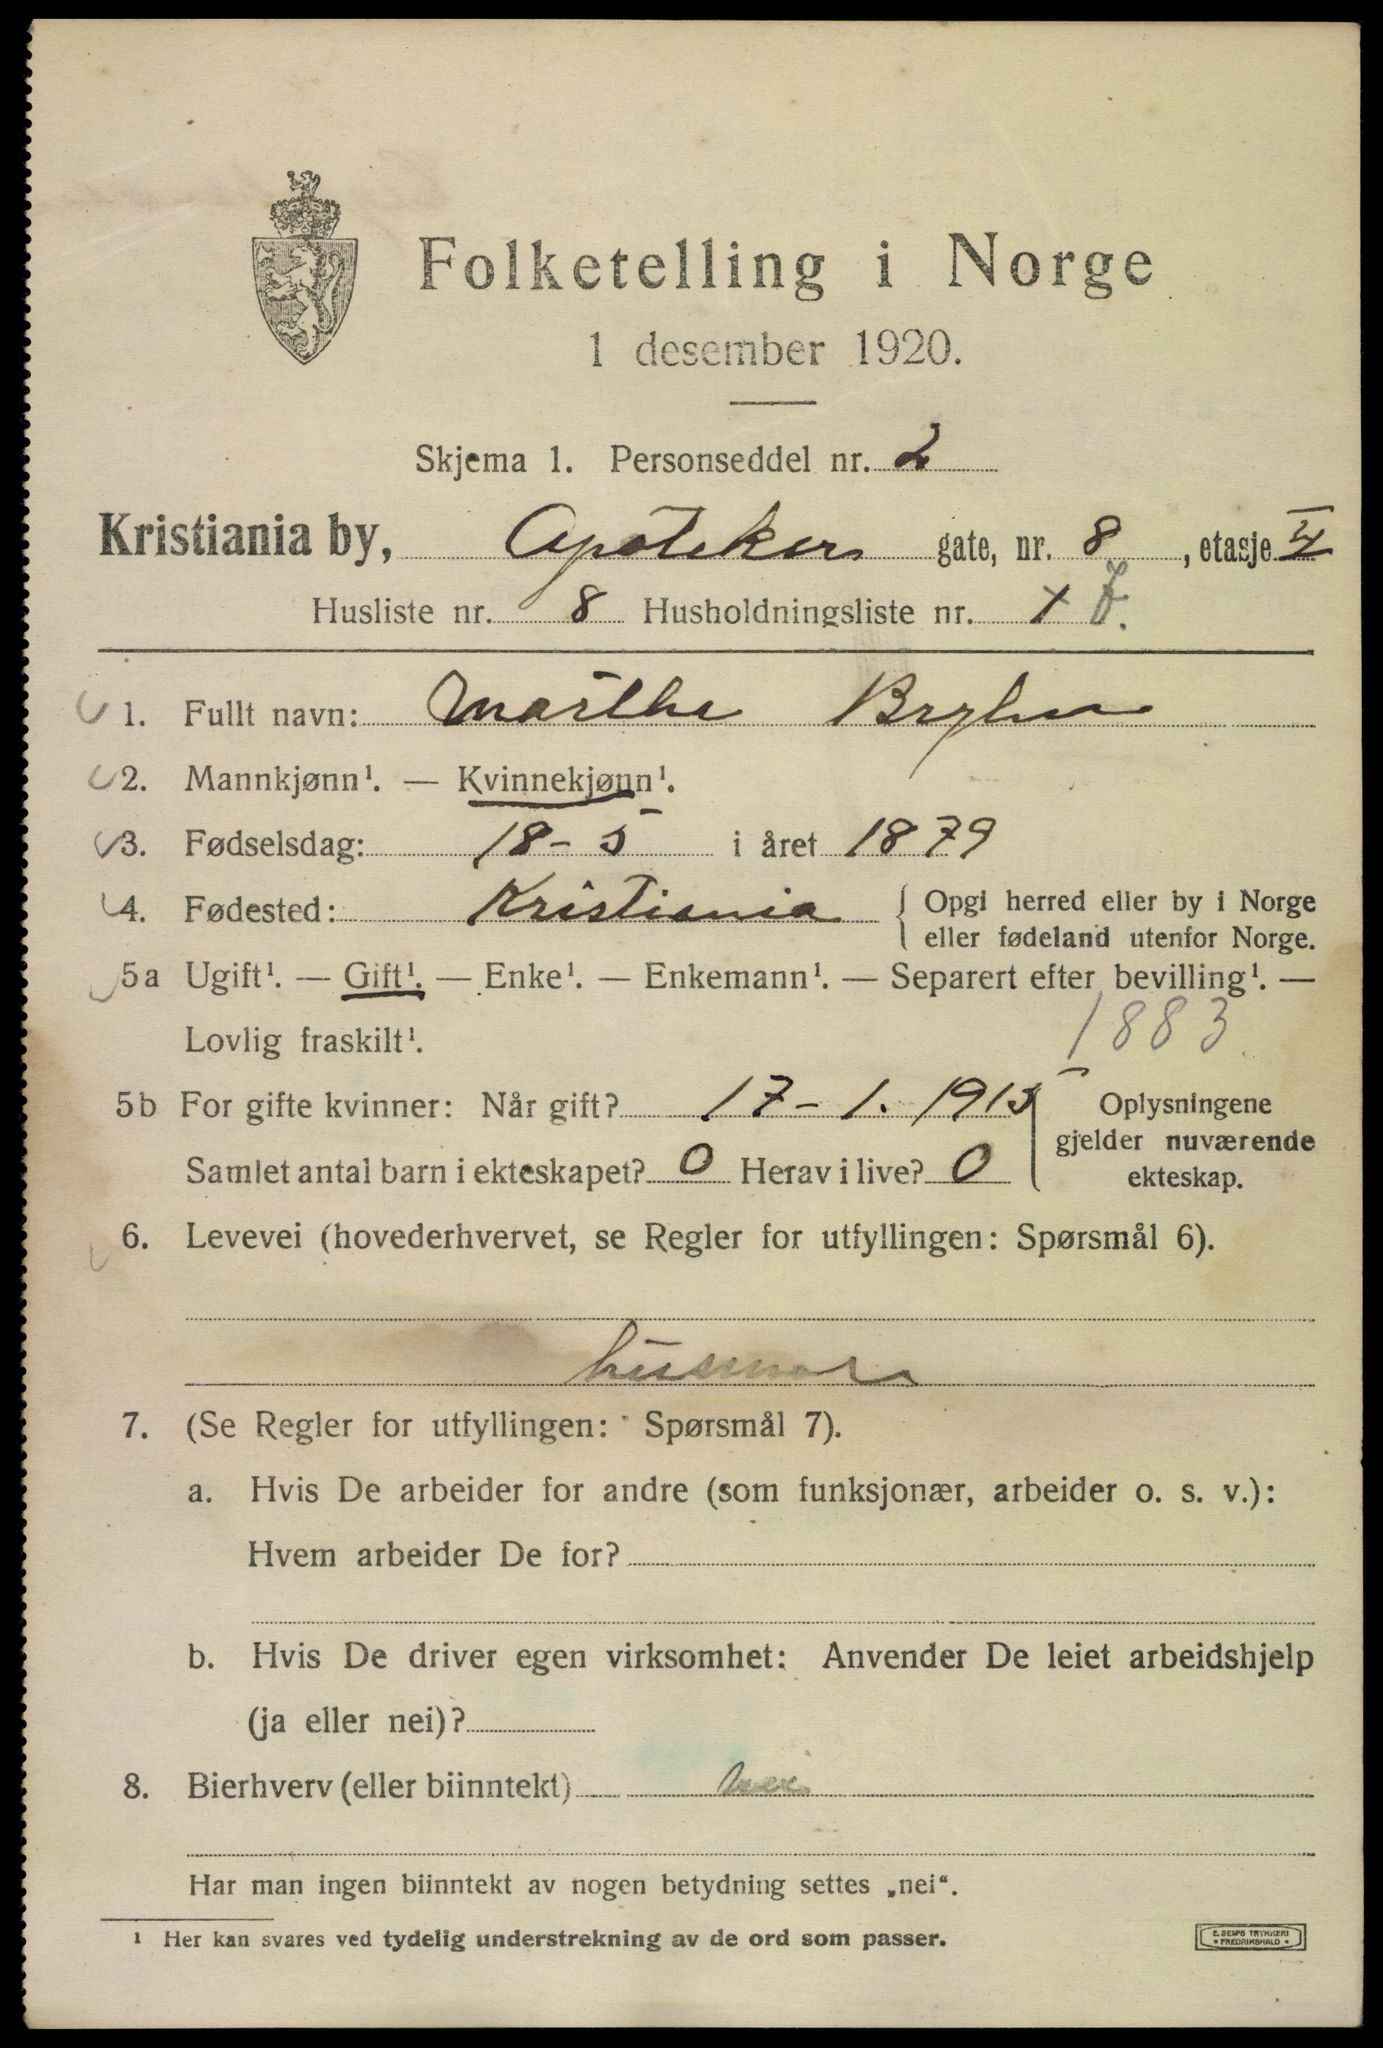 Folketelling i Norge
1 desember 1920.
Skjema 1. Personseddel nr. 2
Kristiania by, Apotekers gate, nr. 8, etasje
Husliste nr. 8 Husholdningsliste nr. 1
1. Fullt navn: Marthe Bryhn
2. Mannkjønn¹. — Kvinnekjønn¹.
3. Fødselsdag: 18-5 i året 1879
4. Fødested: Kristiania { Opgi herred eller by i Norge
eller fødeland utenfor Norge.
5a Ugift¹. — Gift¹. — Enke¹. — Enkemann¹. — Separert efter bevilling¹. —
Lovlig fraskilt¹. 1883
5b For gifte kvinner: Når gift? 17-1. 1915
Samlet antal barn i ekteskapet? 0 Herav i live? 0
Oplysningene
gjelder nuværende
ekteskap.
6. Levevei (hovederhvervet, se Regler for utfyllingen: Spørsmål 6).
husmor
7. (Se Regler for utfyllingen: Spørsmål 7).
a. Hvis De arbeider for andre (som funksjonær, arbeider o. s. v.):
Hvem arbeider De for?
b. Hvis De driver egen virksomhet: Anvender De leiet arbeidshjelp
(ja eller nei)?
8. Bierhverv (eller biinntekt) nei
Har man ingen biinntekt av nogen betydning settes „nei“.
¹ Her kan svares ved tydelig understrekning av de ord som passer.
E. SEM'S TRYKKERI
• FREDRIKSHALD •